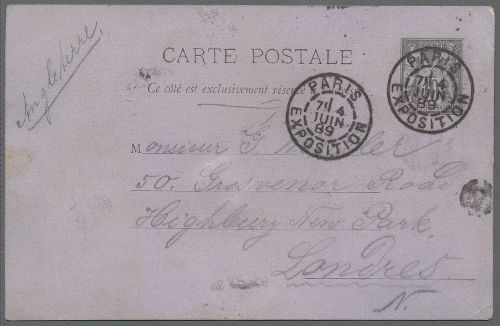 Angleterre
CARTE POSTALE
Ce côté est exclusivement réservé
PARIS
7E 4
JUIN
89
EXPOSITION
PARIS
JUIN
89
EXPOSITION
Monsieur G.
50. Grosvenor Road
Highbury New Park.
Londres.
N.